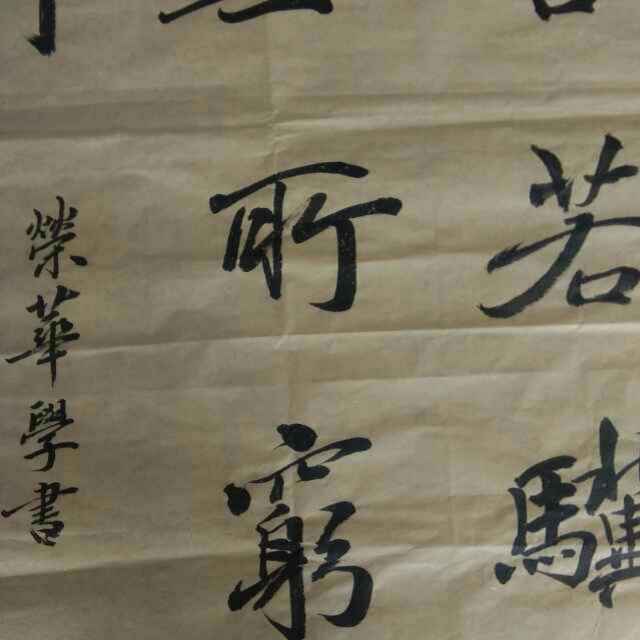 若
所窮
榮華學書